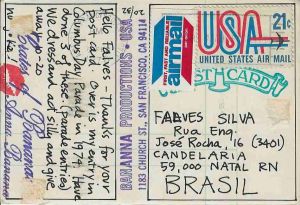 Hello Falves - Thanks for your
post card. Over is my entry in
Columbus Day Parade in 1974. Have
done 3 of these (Parade entries)
We dress and act silly and give
away
Anna Banana
26/02
BANANNA PRODUCTIONS • USA
1183 CHURCH ST. SAN FRANCISCO, CA 94114
airmail
USA 21c
UNITED STATES AIR MAIL
POSTCARD
FALVES SILVA
Rua Eng.
José Rocha, 16 (3401)
CANDELARIA
59,000 NATAL RN
BRASIL